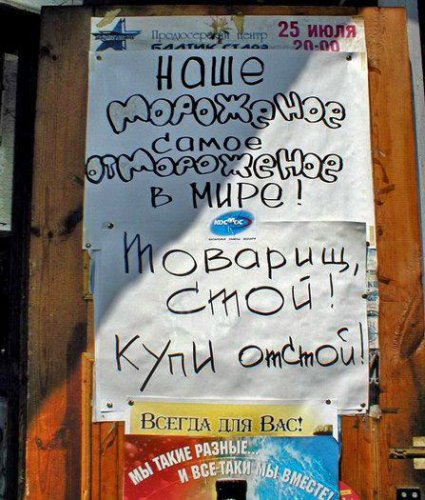 Продюсерский центр
БАЛТИК СТАРЗ
25 ИЮЛЯ
20-00
НАШЕ
МОРОЖЕНОЕ
САМОЕ
ОТМОРОЖЕНОЕ
В МИРЕ!
КОСМОС
ТОВАРИЩ,
СТОЙ!
КУПИ отстой!
ВСЕГДА ДЛЯ ВАС!
МЫ ТАКИЕ РАЗНЫЕ...
И ВСЕ-ТАКИ МЫ ВМЕСТЕ!